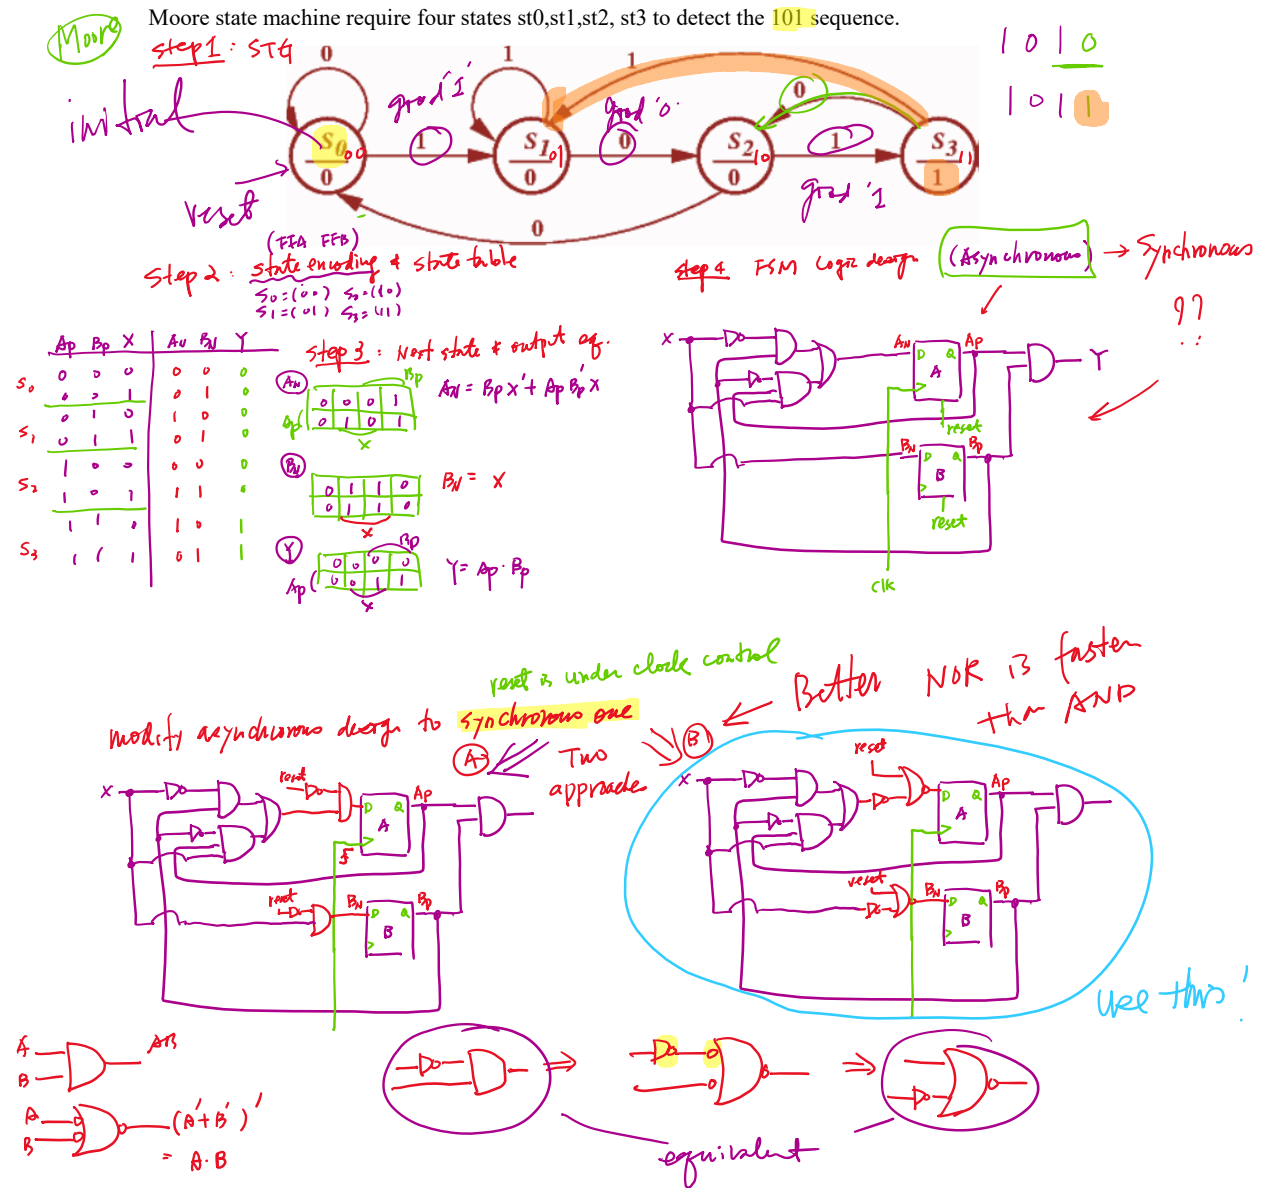 Moore state machine require four states st0,st1,st2, st3 to detect the 101 sequence.
Moore
step1: STG
1 0 1 0
1 0 1 1
initial
reset
0
1
1
0
good '1'
good '0'
good '1'
1
0
1
S0 00
0
S1 01
0
S2 10
0
S3 11
1
0
(FFA FFB)
Step 2: state encoding & state table
S0=(00) S2=(10)
S1=(01) S3=(11)
Ap Bp X AN BN Y
S0 0 0 0 0 0 0
0 0 1 0 1 0
S1 0 1 0 1 0 0
0 1 1 0 1 0
S2 1 0 0 0 0 0
1 0 1 1 1 0
S3 1 1 0 1 0 1
1 1 1 0 1 1
Step 3: Next state & output eq.
AN
Bp
0 0 0 1
0 1 0 1
Ap
X
AN = Bp X' + Ap Bp' X
BN
0 1 1 0
0 1 1 0
X
BN = X
Y
Bp
0 0 0 0
0 0 1 1
Ap
X
Y = Ap · Bp
step 4 FSM Logic design (Asynchronous) → Synchronous
??
X
AN D Q Ap
A
reset
Y
BN D Q Bp
B
reset
clk
reset is under clock control
modify asynchronous design to synchronous one
A
Two
approaches
B
Better NOR is faster
than AND
X
reset
D Q Ap
A
reset
BN D Q Bp
B
X
reset
D Q Ap
A
reset
BN D Q Bp
B
use this!
A
B
AB
A
B
(A'+B')'
= A·B
⇒
⇒
equivalent